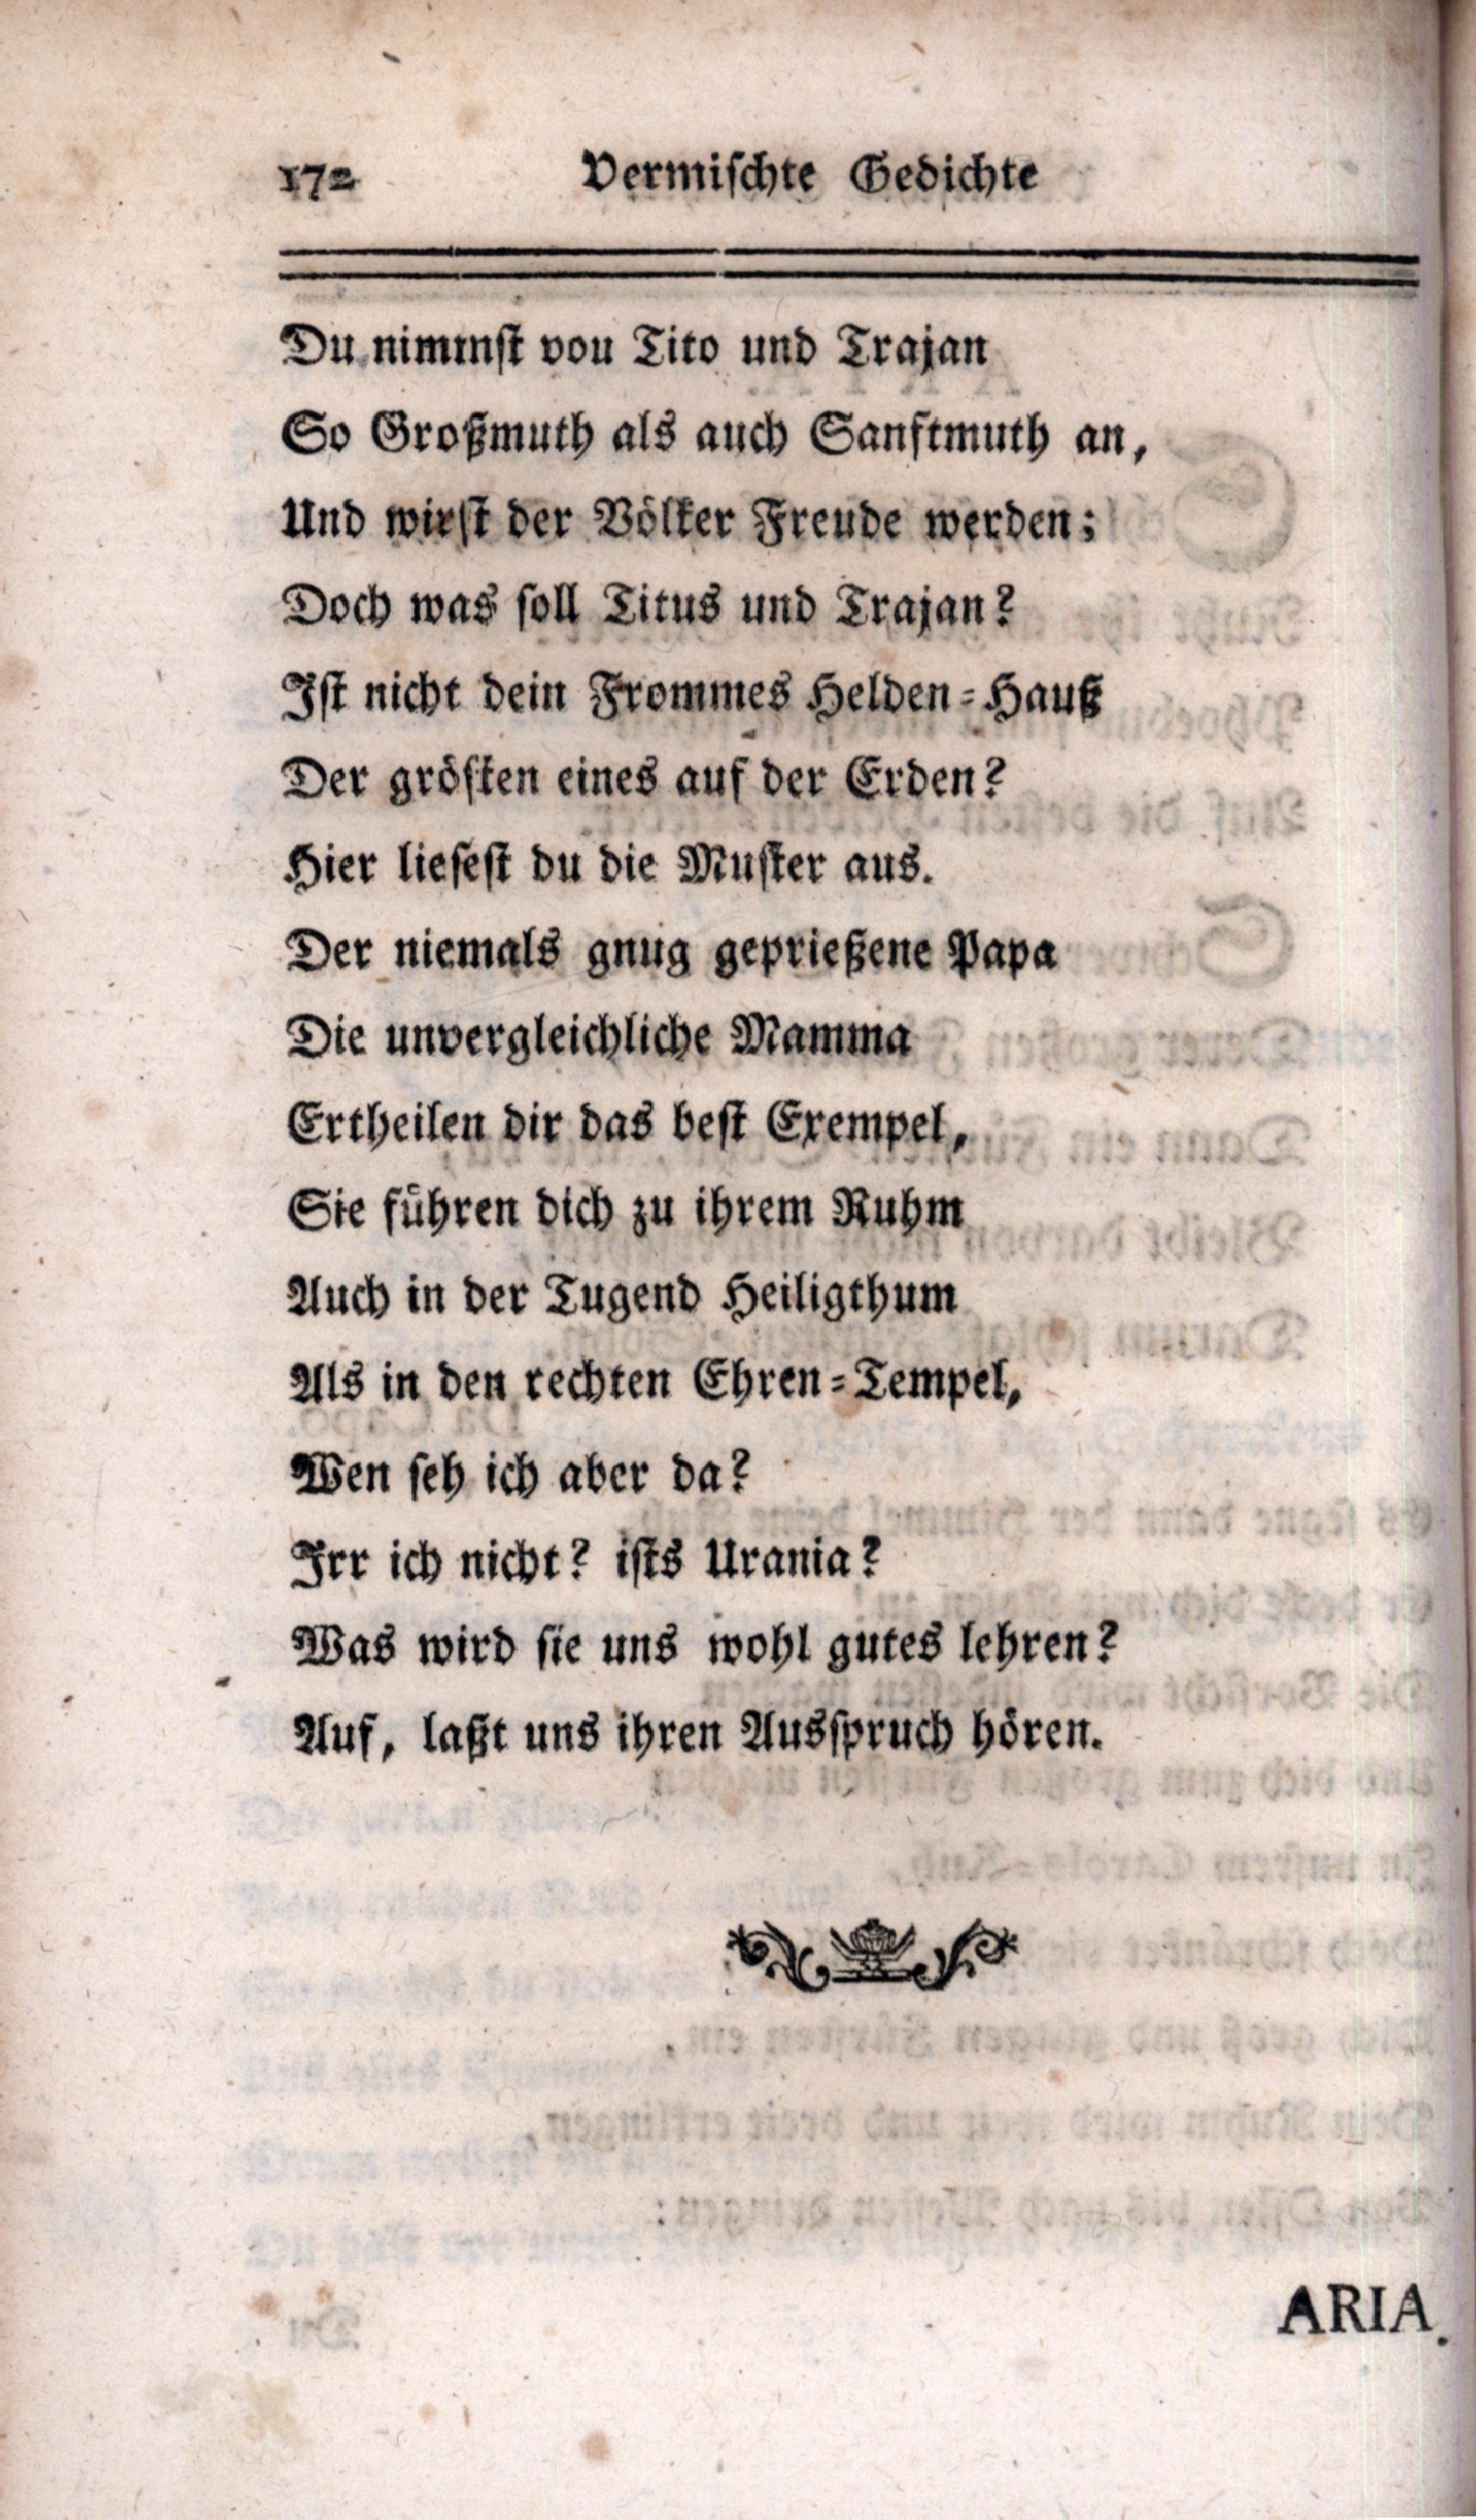 172 Vermischte Gedichte
Du nimmst von Tito und Trajan
So Großmuth als auch Sanftmuth an,
Und wirst der Völker Freude werden;
Doch was soll Titus und Trajan?
Ist nicht dein Frommes Helden-Hauß
Der grösten eines auf der Erden?
Hier liesest du die Muster aus.
Der niemals gnug geprießene Papa
Die unvergleichliche Mamma
Ertheilen dir das best Exempel,
Sie führen dich zu ihrem Ruhm
Auch in der Tugend Heiligthum
Als in den rechten Ehren-Tempel,
Wen seh ich aber da?
Irr ich nicht? ists Urania?
Was wird sie uns wohl gutes lehren?
Auf, laßt uns ihren Ausspruch hören.
ARIA.